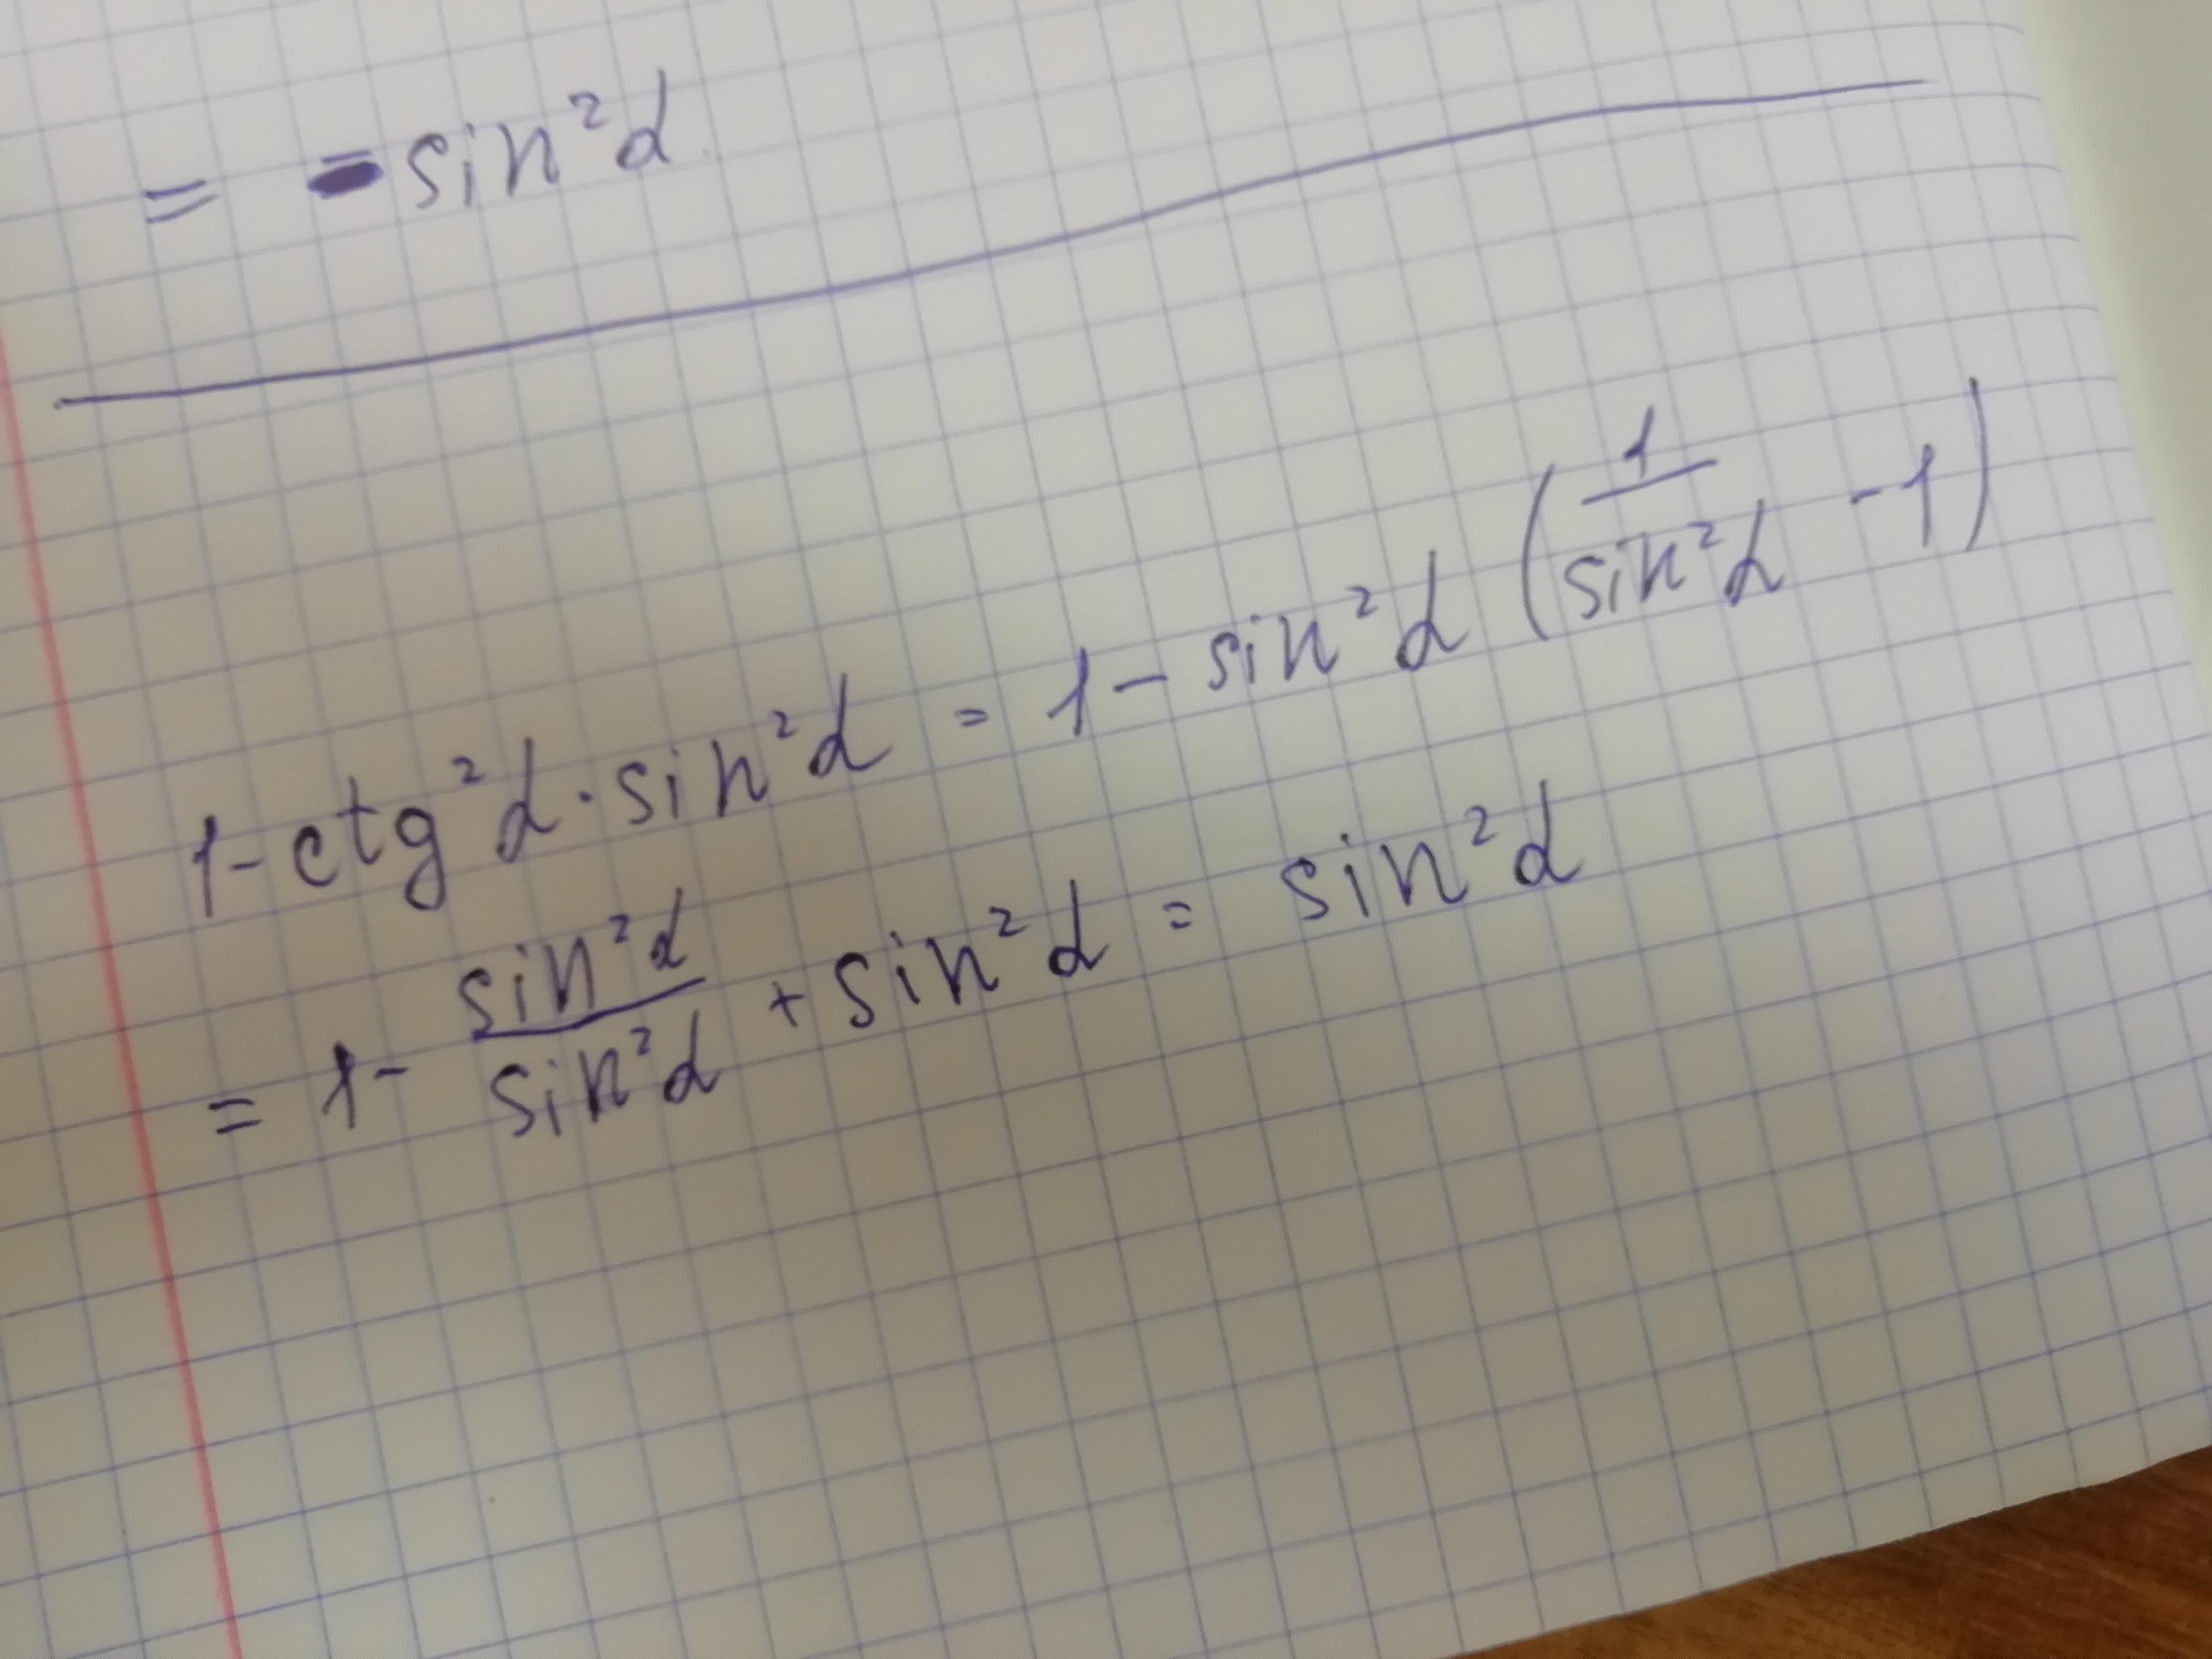 = - sin²α
1 - ctg²α · sin²α = 1 - sin²α (1/sin²α - 1)
= 1 - sin²α/sin²α + sin²α = sin²α